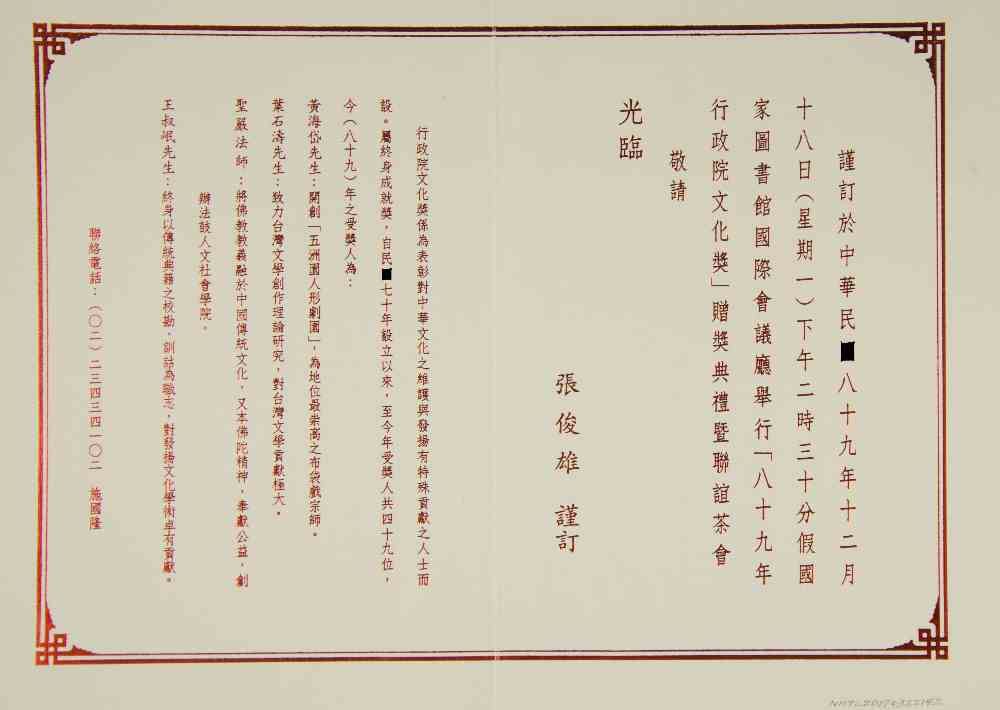 謹訂於中華民八十九年十二月
十八日（星期一）下午二時三十分假國
家圖書館國際會議廳舉行「八十九年
行政院文化獎」贈獎典禮暨聯誼茶會
敬請
光臨
張俊雄 謹訂
行政院文化獎係為表彰對中華文化之維護與發揚有特殊貢獻之人士而
設。屬終身成就獎，自民七十年設立以來，至今年受獎人共四十九位，
今（八十九）年之受獎人為：
黃海岱先生：開創「五洲園人形劇團」，為地位最崇高之布袋戲宗師。
葉石濤先生：致力台灣文學創作理論研究，對台灣文學貢獻極大。
聖嚴法師：將佛教教義融於中國傳統文化，又本佛陀精神，奉獻公益，創
辦法鼓人文社會學院。
王叔岷先生：終身以傳統典籍之校勘、訓詁為職志，對發揚文化學術卓有貢獻。
聯絡電話：（〇二）二三四三四一〇二 施國隆